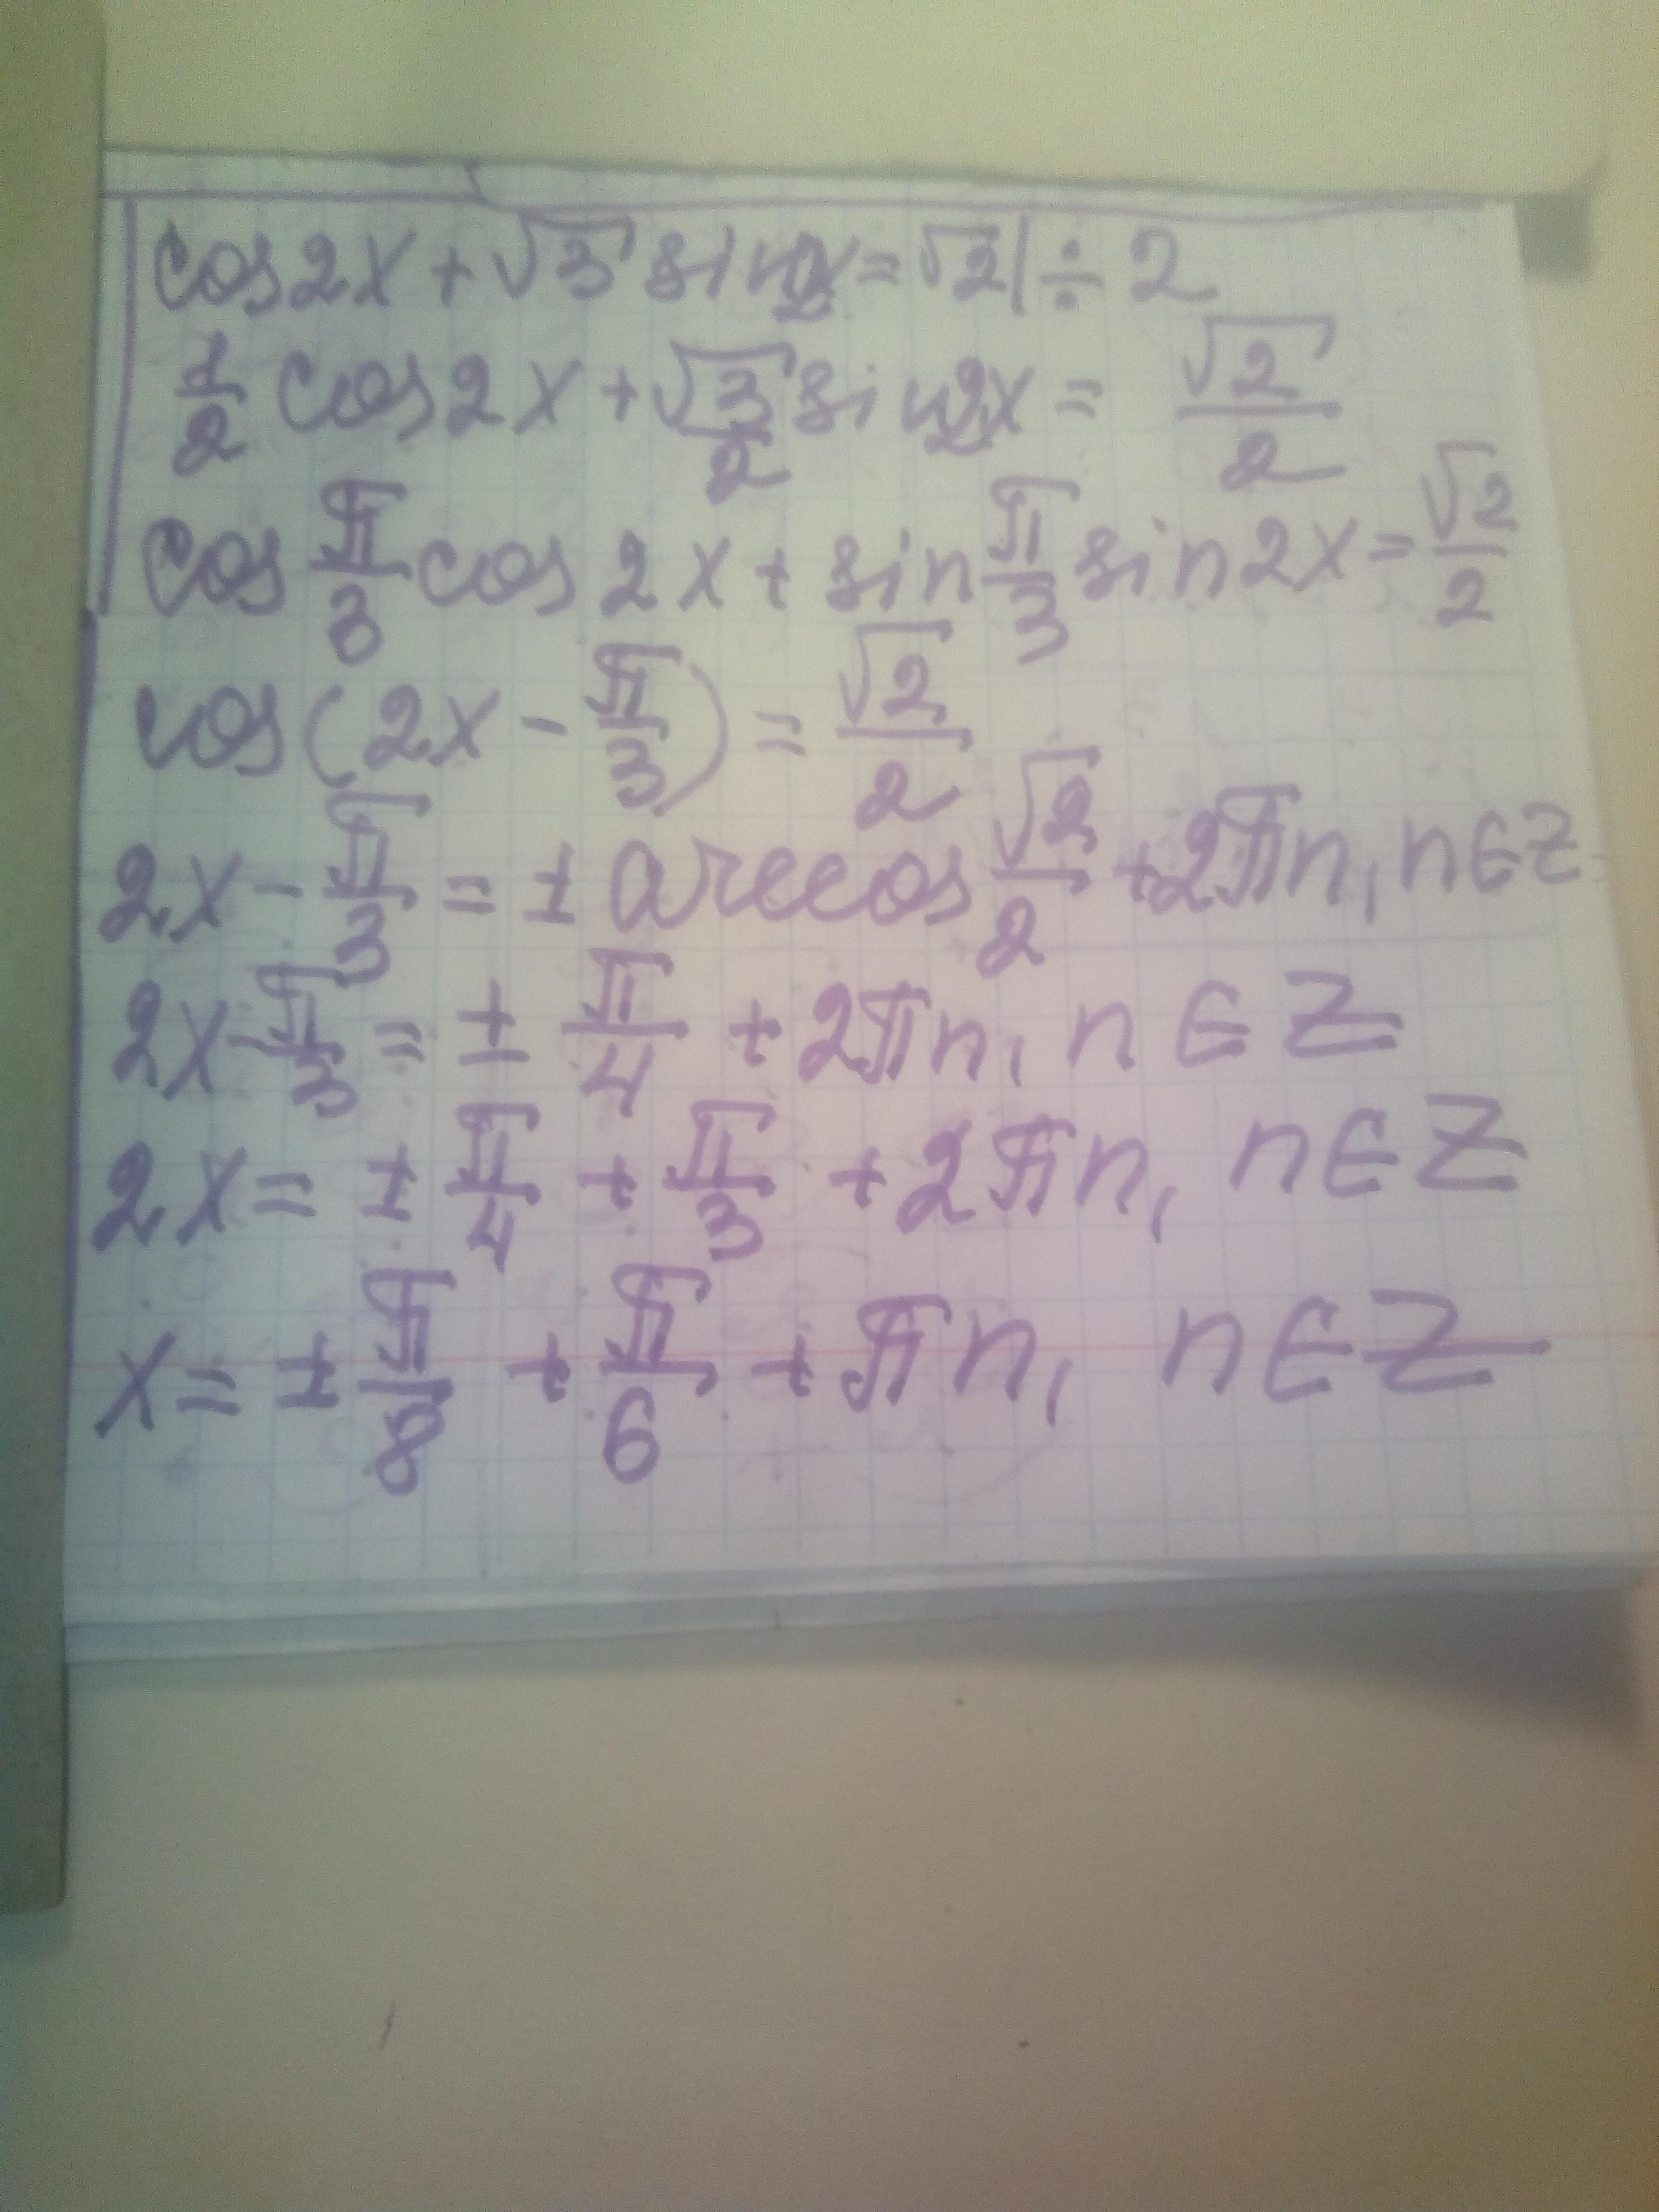 cos2x + √3 sin2x = √2 | ÷ 2
1/2 cos2x + √3/2 sin2x = √2/2
cos π/3 cos 2x + sin π/3 sin 2x = √2/2
cos(2x - π/3) = √2/2
2x - π/3 = ± arccos √2/2 + 2πn, n ∈ Z
2x - π/3 = ± π/4 + 2πn, n ∈ Z
2x = ± π/4 + π/3 + 2πn, n ∈ Z
x = ± π/8 + π/6 + πn, n ∈ Z